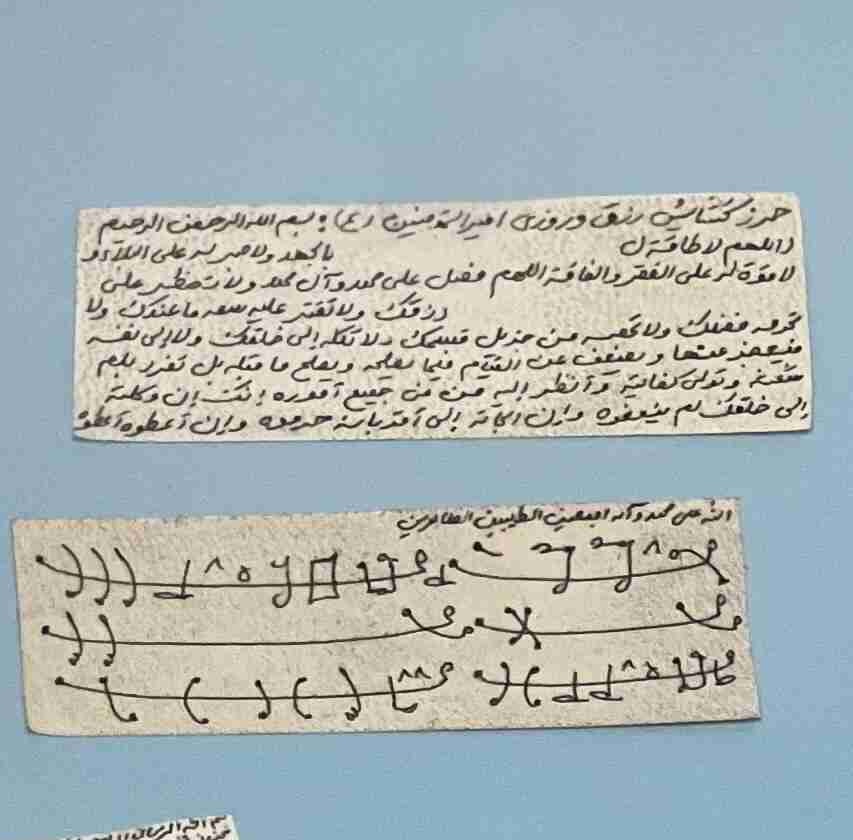 حرز گشایش رزق و روزی امیرالمؤمنین (ع) بسم الله الرحمن الرحیم
اللهم لا طاقة ل بالجهد ولا صبر له علی البلاء و
لا قوة له علی الفقر والفاقة اللهم فصل علی محمد وآل محمد ولا تحظر علی
رزقک ولا تقتر علیه سعة ما عندک ولا
تحرمه فضلک ولا تحسبه من جزیل قسمک ولا تکله إلی خلقک ولا إلی نفسه
فیعجز عنها و یضعف عن القیام فیما یصلحه و یصلح ما قبله بل تفرد بلم
شعثه و تولی کفایته وأنظر إلیه من فی جمیع أموره إنک إن وکلته
إلی خلقک لم ینفعوه وإن الجأته إلی أقربائه حرموه وإن أعطوه أعطوا
الله علی محمد وآله اجمعین الطیبین الطاهرین